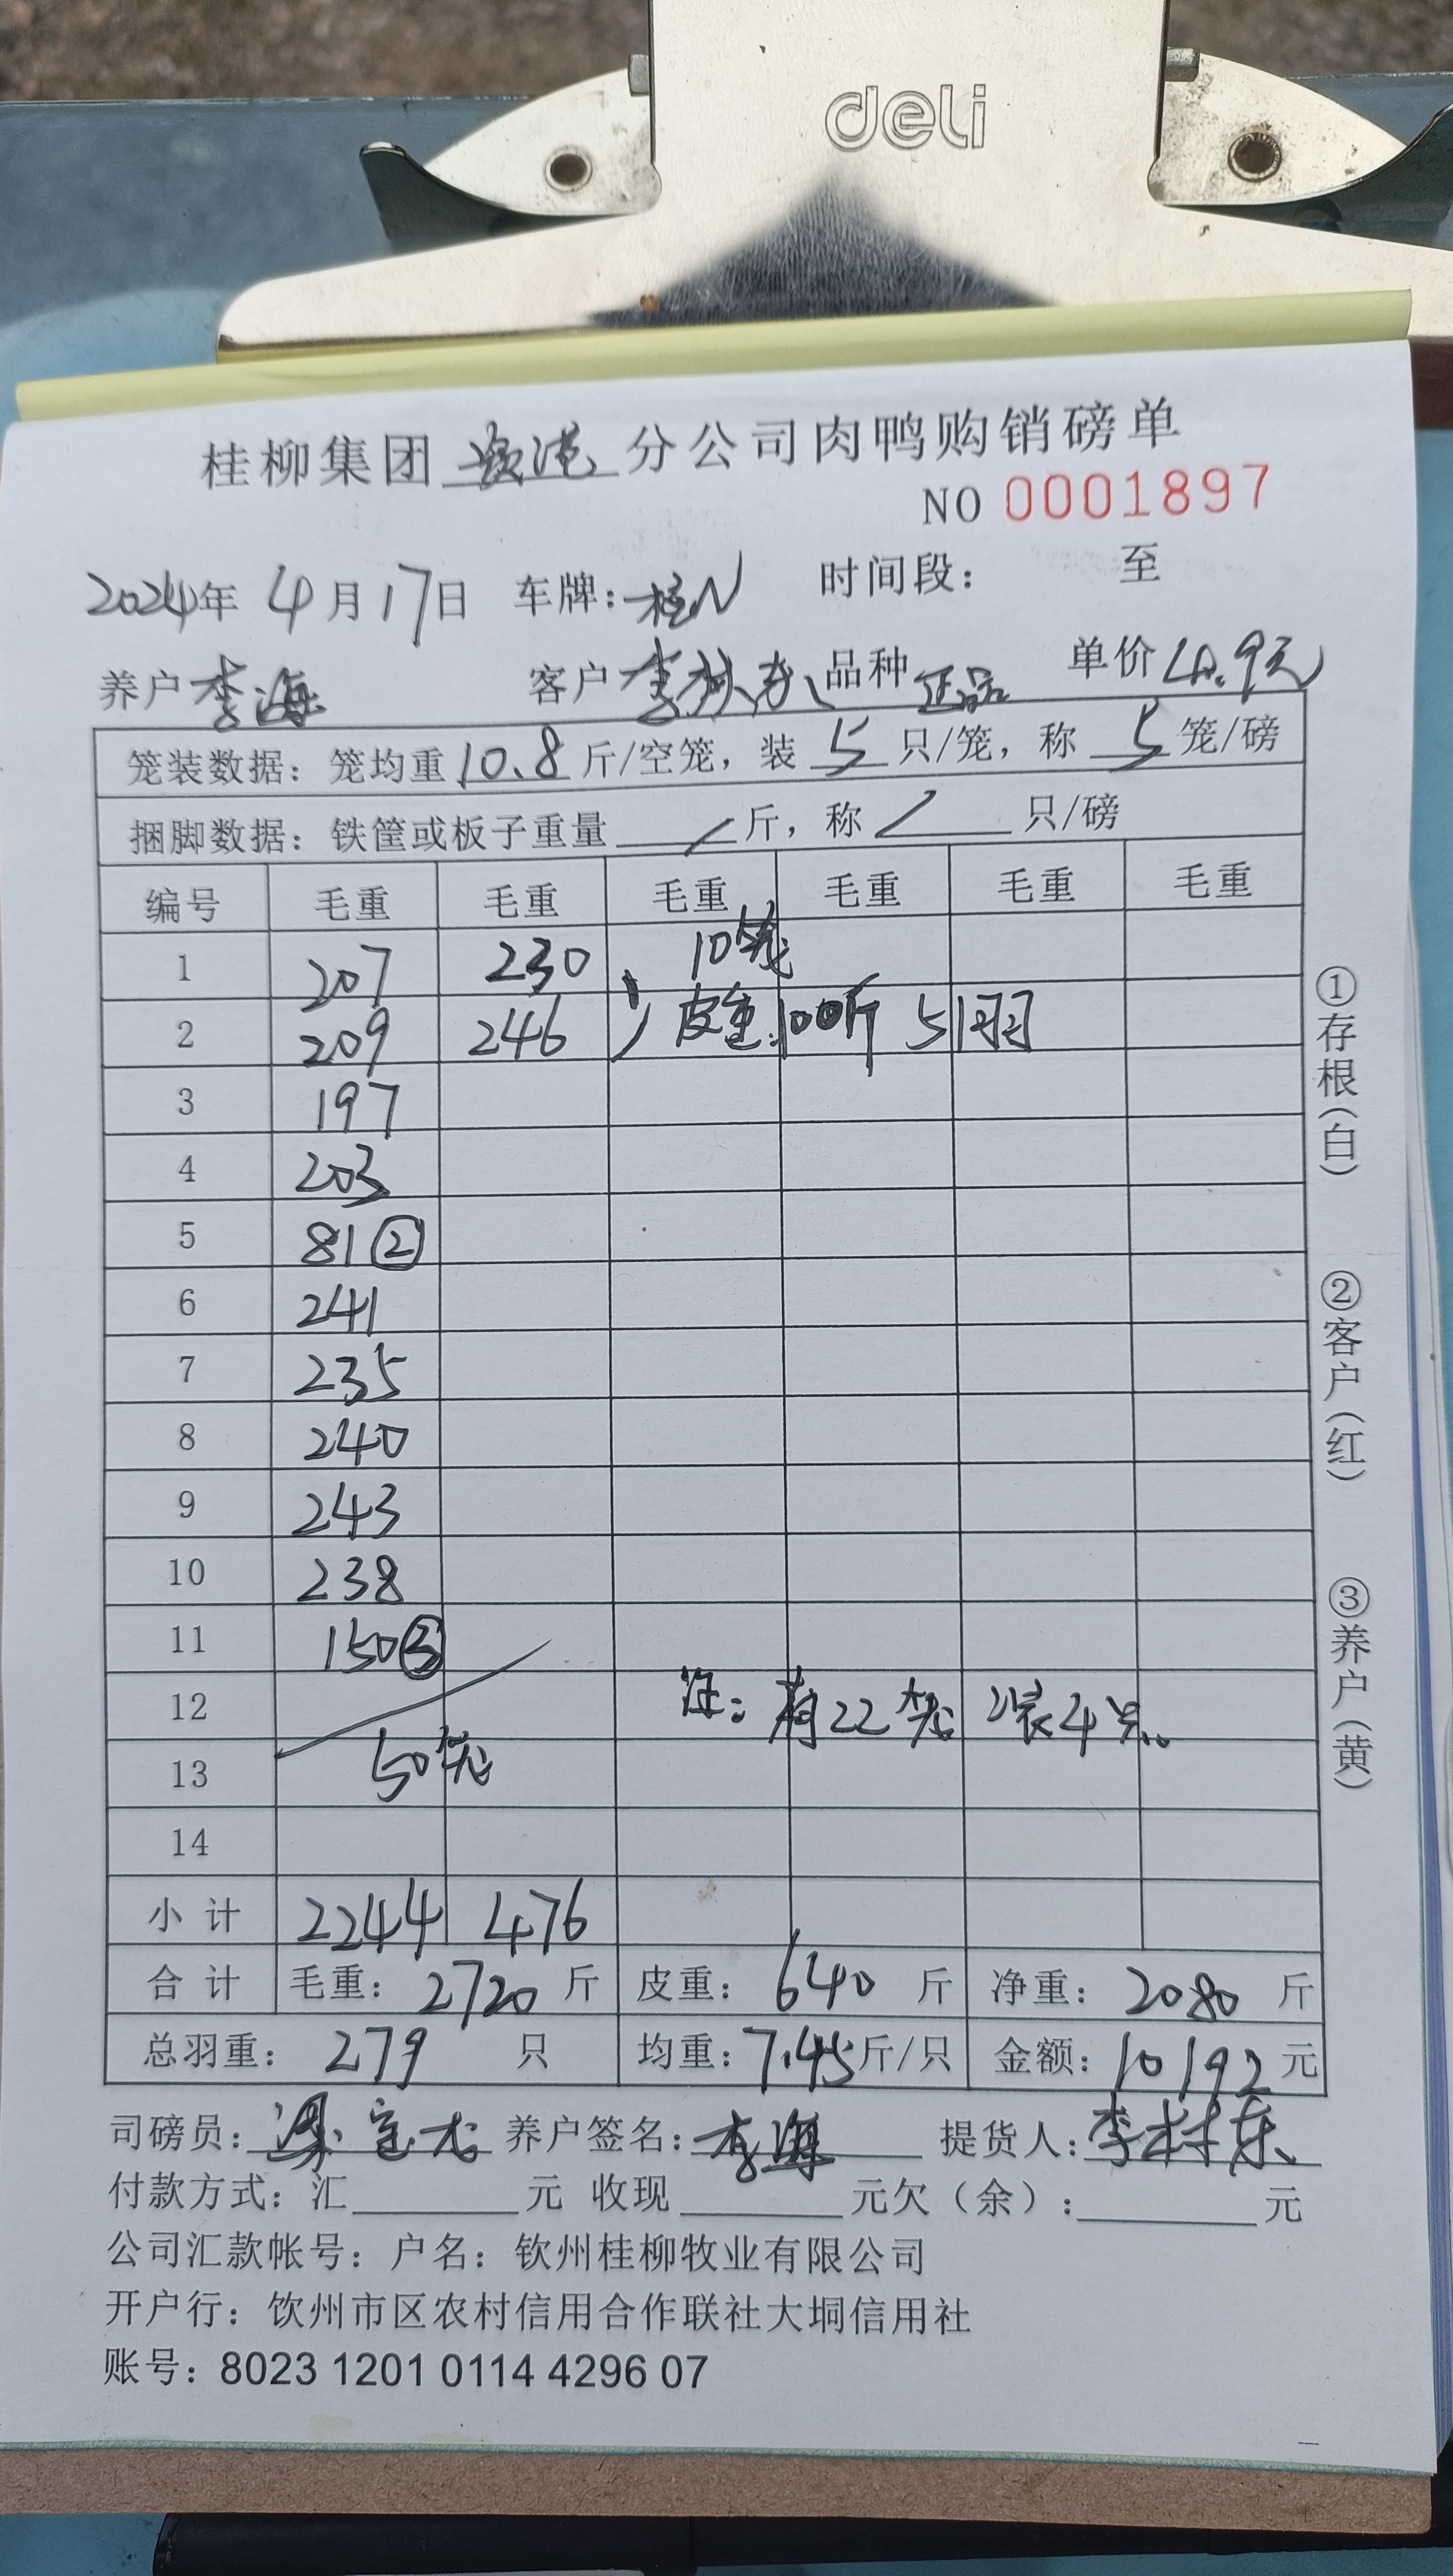 deli
桂柳集团 分公司肉鸭购销磅单
NO 0001897
2024年 4月17日 车牌:桂N 时间段: 至
养户 李海 客户 李林东 品种 正品 单价 4.9元
笼装数据: 笼均重 10.8 斤/空笼, 装 5 只/笼, 称 5 笼/磅
捆脚数据: 铁筐或板子重量 / 斤, 称 / 只/磅
编号 毛重 毛重 毛重 毛重 毛重 毛重
1 207 230 10笼
2 209 246 皮重:100斤 51羽
3 197
4 203
5 81②
6 241
7 235
8 240
9 243
10 238
11 150③
12 注: 有22笼 装4只。
13 50笼
14
小计 2244 476
合计 毛重: 2720 斤 皮重: 640 斤 净重: 2080 斤
总羽重: 279 只 均重: 7.45斤/只 金额: 10192 元
司磅员: 养户签名: 李海 提货人: 李林东
付款方式: 汇 元 收现 元欠(余): 元
公司汇款帐号: 户名: 钦州桂柳牧业有限公司
开户行: 饮州市区农村信用合作联社大垌信用社
账号: 8023 1201 0114 4296 07
①存根(白)
②客户(红)
③养户(黄)